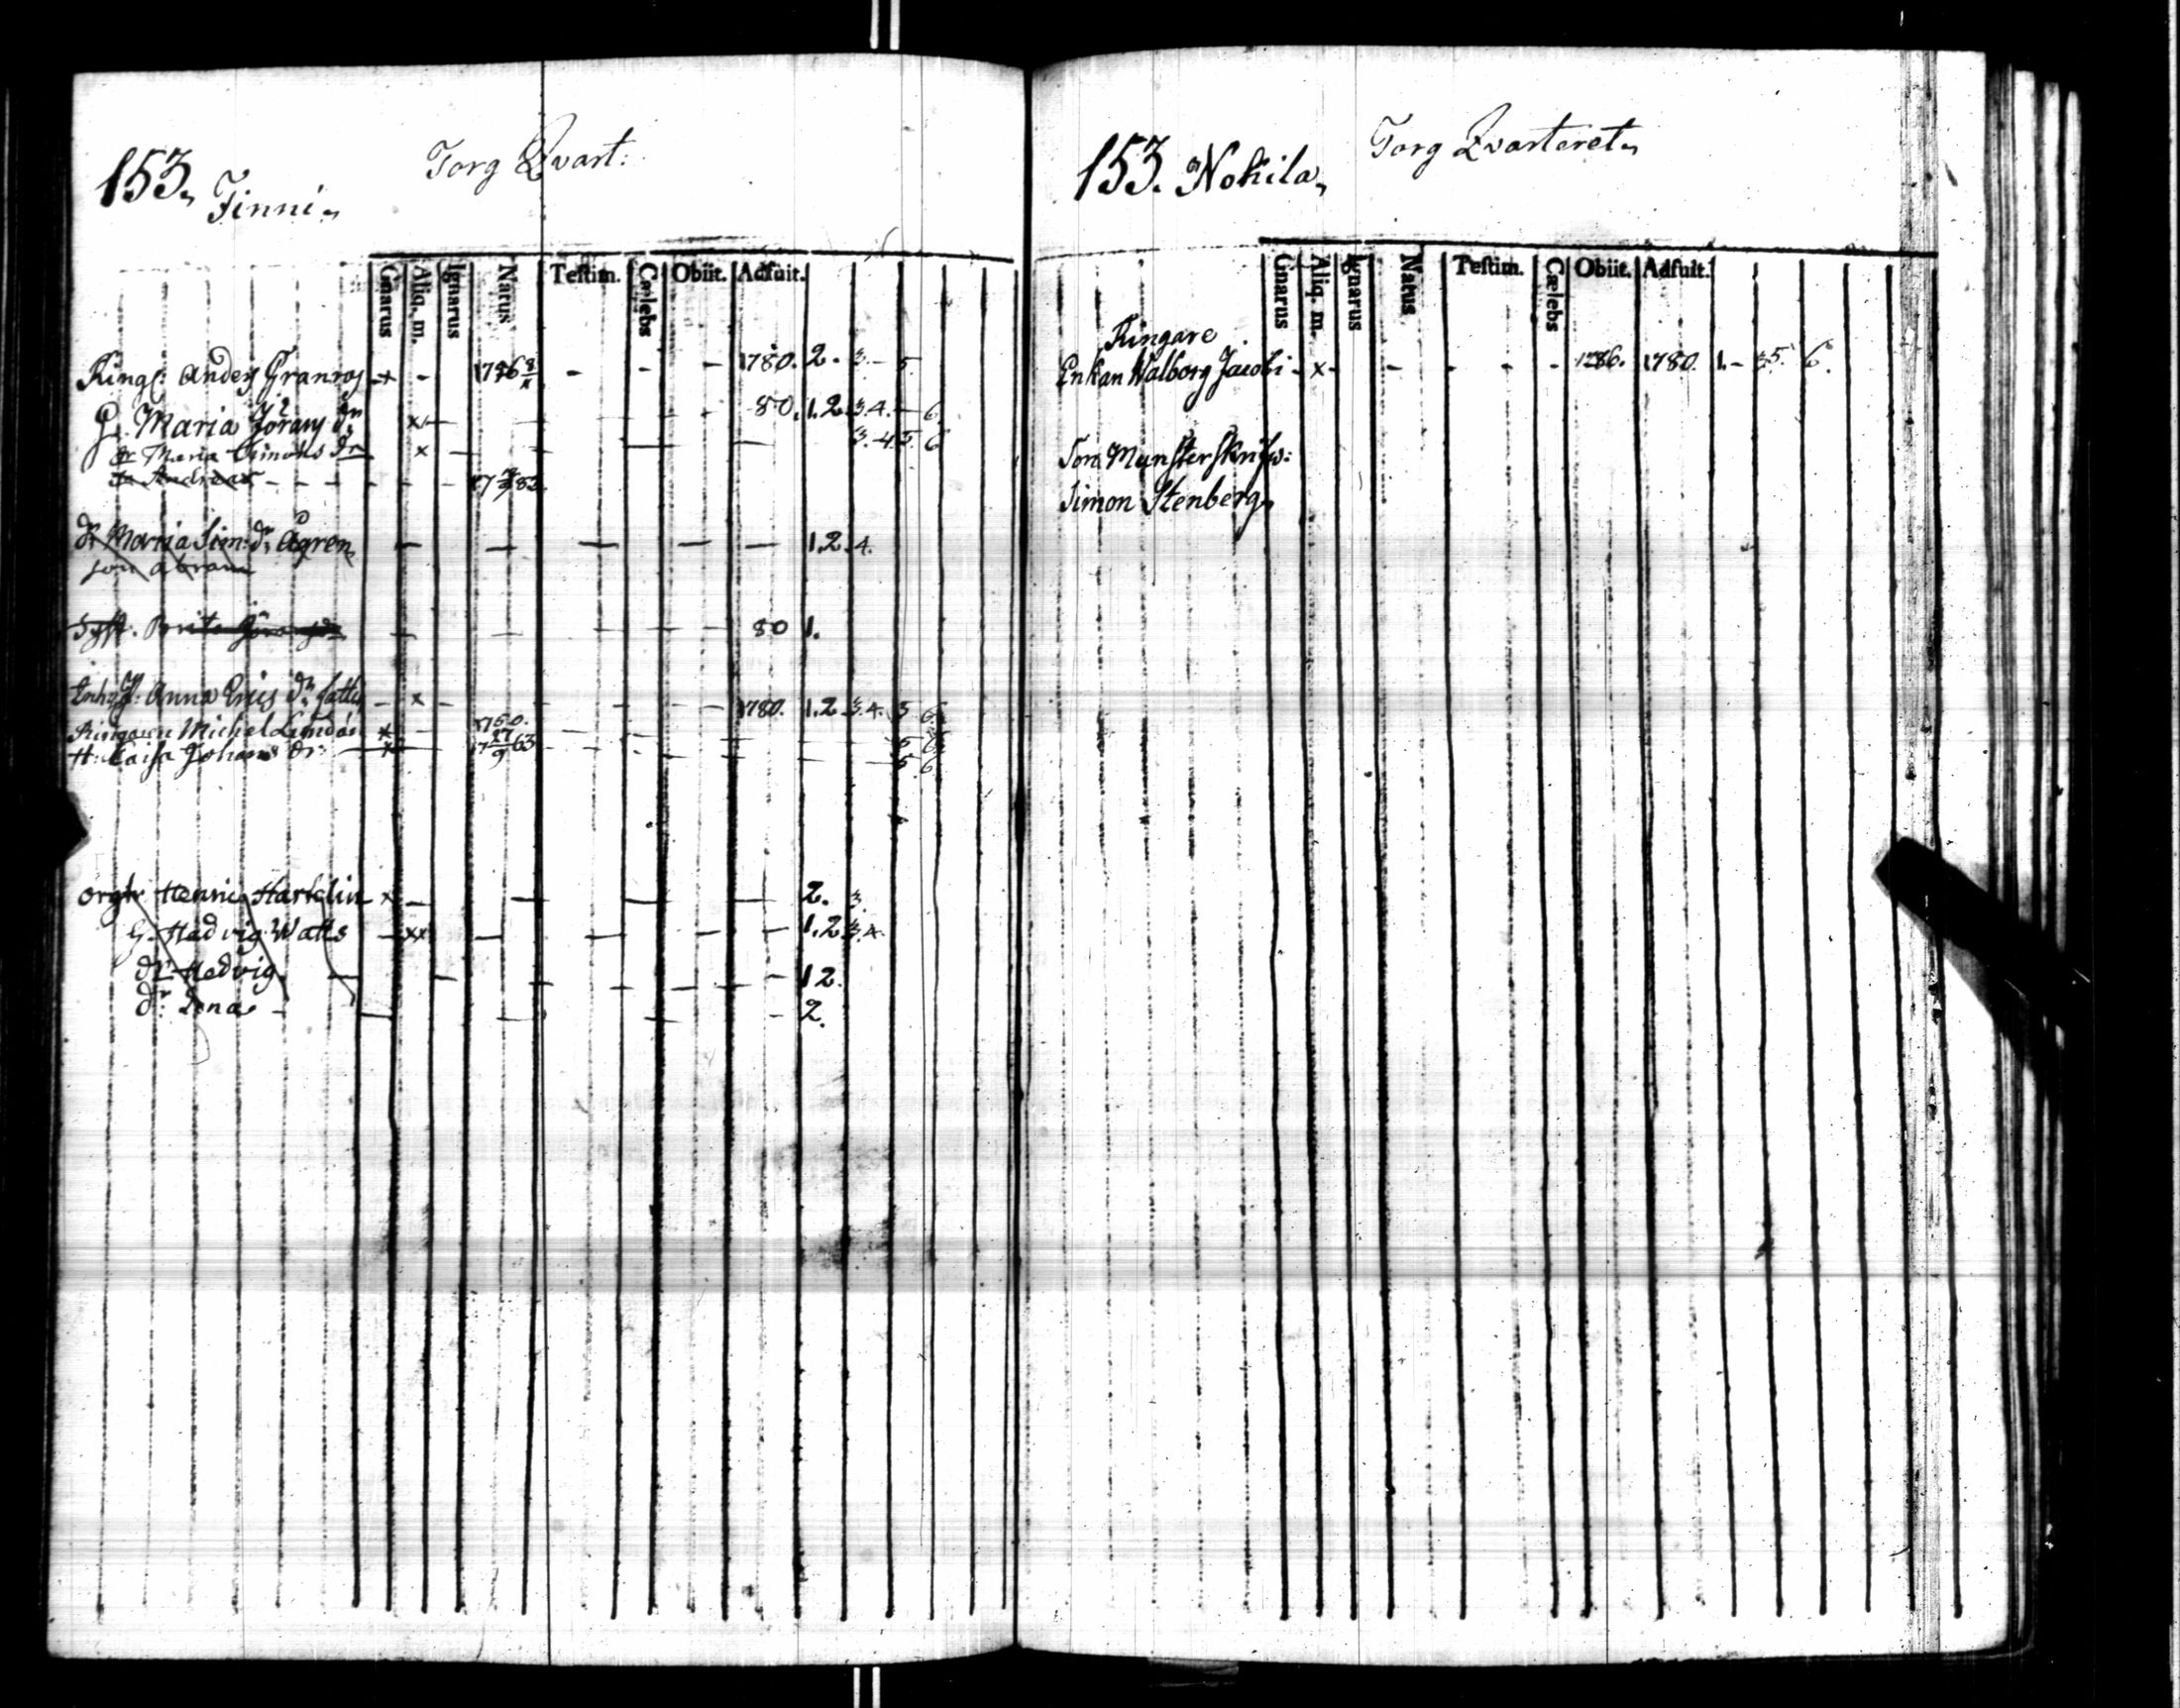 153. Finni.
Torg Qvart:
Gnarus Aliq. m. Ignarus Natus Testim. Cælebs Obiit. Adfuit.
Ringl: Anders Granros + - - - - 1780. 2. 3. - 5.
H. Maria Jörans dr x - 80. 1. 2. 3. 4. - 6
dr Maria Simons dr x - 3. 4. 5. 6
Andreas - - -
dr Maria Sim: dr Ågren - - - - - 1. 2. 4.
son Abram
Syst. Brita - - - - - 80 1.
Anna Erics dr x - - - 1780. 1. 2. 3. 4. 5 6
Ringaren Michel x 1760. 5 6
H: Caisa Johans dr: x 17 27/9 63 5. 6
Henric Hartelin x - - - - 2. 3.
H. Hedvig Watts - xx - - - - 1. 2. 3. 4.
dr Hedvig - - - - - - 1 2.
dr Lena - - - - - 2.
153. Nohila,
Torg Qvarteret,
Gnarus Aliq. m. Ignarus Natus Testim. Cælebs Obiit. Adfuit.
Ringare
Enkan Walborg Jacobi - x - - - - - 1786. 1780. 1. - 3 5. 6.
Son Munsterskrifw:
Simon Stenberg,